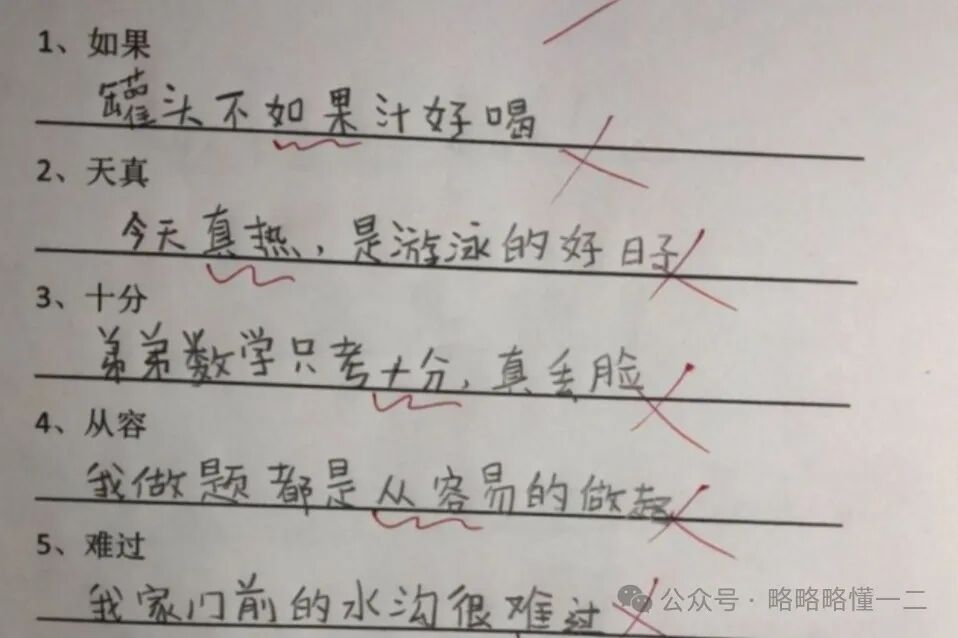 1、如果
罐头不如果汁好喝
2、天真
今天真热，是游泳的好日子
3、十分
弟弟数学只考十分，真丢脸
4、从容
我做题都是从容易的做起
5、难过
我家门前的水沟很难过
公众号·略略略懂一二